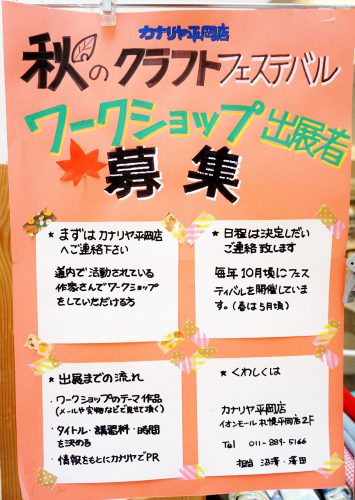 カナリヤ平岡店
秋のクラフトフェスティバル
ワークショップ出展者
募集
★ まずはカナリヤ平岡店
へご連絡下さい
道内で活動されている
作家さんでワークショップ
をしていただける方
★ 日程は決定しだい
ご連絡致します
毎年10月頃にフェス
ティバルを開催していま
す。(春は5月頃)
★ 出展までの流れ
・ワークショップのテーマ作品
(メールや実物などで見せて頂く)
・タイトル・講習料・時間
を決める
・情報をもとにカナリヤでPR
★ くわしくは
カナリヤ平岡店
イオンモール札幌平岡店2F
Tel 011-889-5166
担当 沼澤・澤田